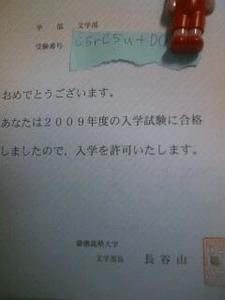 学 部　文学部
受験番号　csrcsu+DC
おめでとうございます。
あなたは２００９年度の入学試験に合格
しましたので、入学を許可いたします。
慶應義塾大学
文学部長　長谷山